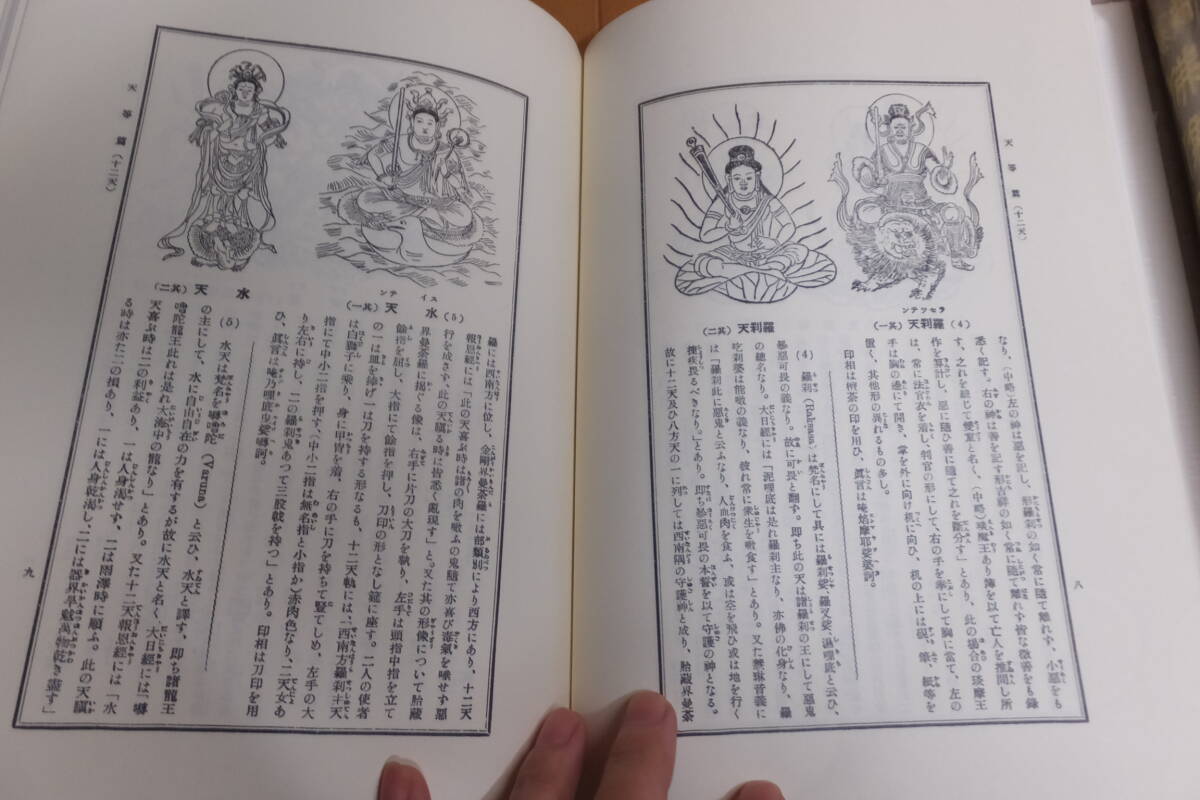 天等篇（十二天）
(4) 羅刹天（其一）
ラセツテンン
羅刹天（其二）
なり、（中略）左の神は惡を記し、形羅刹の如く常に隨て離れず、小惡をも
悉く記す。右の神は善を記す形吉祥の如く常に隨て離れず皆な微善をも録
す、之れを總じて雙童と名く、（中略）琰魔王あり簿を以て亡人を推問し所
作を算計し、惡に隨ひ善に隨て之れを斷分す」とあり、此の場合の琰摩王
は、常に法官衣を着し、判官の形にして、右の手を拳にして胸に當て、左の
手は胸の邊にて開き、掌を外に向け机に向ひ、机の上には硯、筆、紙等を
置く、其他形の異れるもの多し。
印相は檀茶の印を用ひ、眞言は唵焔摩耶娑婆訶。
(4) 羅刹 (Raksasa) は梵名にして具には羅刹娑、羅叉娑、涅哩底とも云ひ、
暴惡可畏の義なり。故に可畏と翻す。即ち此の天は諸羅刹の王にして惡鬼
の總名なり。大日經には「泥哩底は是れ羅刹主なり、亦佛の化身なり、羅
吃刹婆は能噉の義なり、彼れ常に衆生を噉食す」とあり。又た慧琳音義に
は「羅刹此に惡鬼と云ふなり、人血肉を食ふ、或は空を飛び或は地を行く
捷疾畏るべきなり。」とあり。即ち暴惡可畏の本誓を以て守護の神となる。
故に十二天及び八方天の一に列しては西南隅の守護神と成り、胎藏界曼荼
八
天等篇（十二天）
(5) 水天（其一）
スイテン
水天（其二）
羅には西南方に位し、金剛界曼荼羅には部類別により西方にあり、十二天
報恩經には「此の天喜ぶ時は諸の肉を噉ふの鬼隨て亦喜び毒氣を唾せず惡
行を成さず、此の天瞋る時は皆悉く亂現す」と。又た其の形像について胎藏
界曼荼羅に揭ぐる像は、右手に片刃の大刀を執り、左手は頭指中指を立て
餘指を屈し、大指にて餘指を押し、刀印の形となし筵に座す。二人の使者
の一は皿を捧げ一は刀を持する形なるも、十二天軌には、「西南方羅刹主天
は白獅子に乘り、身に甲冑を着、右の手に刀を持ちて竪てしめ、左手の大
指にて中小二指を押す、（中小二指は無名指と小指か）赤肉色なり、二天女あ
り左右に持し、二の羅刹鬼あつて三股戟を持つ」とあり。印相は刀印を用
ひ、眞言は唵乃理底曳娑嚩訶。
(5) 水天は梵名を嚕陀 (Varuna) と云ひ、水天と譯す、即ち諸龍王
の主にして、水に自由自在の力を有するが故に水天と名く、大日經には「嚩
嚕陀龍王此れは是れ大海中の龍なり」とあり。又た十二天報恩經には「水
天喜ぶ時は二の利益あり、一は人身渴せず、二は雨澤時に順ふ。此の天瞋
る時は亦た二の損あり、一には人身乾渴し、二には器界旱魃萬物乾き盡す」
九